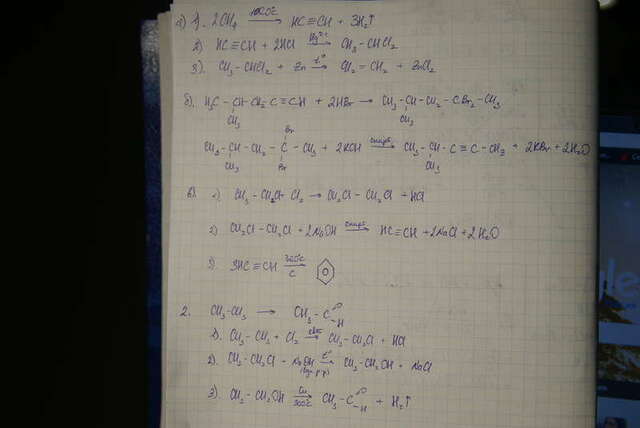 а) 1. 2CH₄ 1500°C → HC≡CH + 3H₂↑
2) HC≡CH + 2HCl → CH₃-CHCl₂
3). CH₃-CHCl₂ + Zn t° → CH₂=CH₂ + ZnCl₂
б). H₃C-CH-CH₂-C≡CH + 2HBr → CH₃-CH-CH₂-CBr₂-CH₃
CH₃ CH₃
Br
CH₃-CH-CH₂-C-CH₃ + 2KOH спирт. → CH₃-CH-C≡C-CH₃ + 2KBr + 2H₂O
CH₃ Br CH₃
в) 1) CH₃-CH₂Cl + Cl₂ → CH₂Cl-CH₂Cl + HCl
2) CH₂Cl-CH₂Cl + 2NaOH спирт → HC≡CH + 2NaCl + 2H₂O
3). 3HC≡CH C →
2. CH₃-CH₃ → CH₃-C=O
H
1). CH₃-CH₃ + Cl₂ свет → CH₃-CH₂Cl + HCl
2). CH₃-CH₂Cl + NaOH t° → CH₃-CH₂OH + NaCl
(водн. р-р)
3). CH₃-CH₂OH Cu 300°C → CH₃-C=O + H₂↑
H